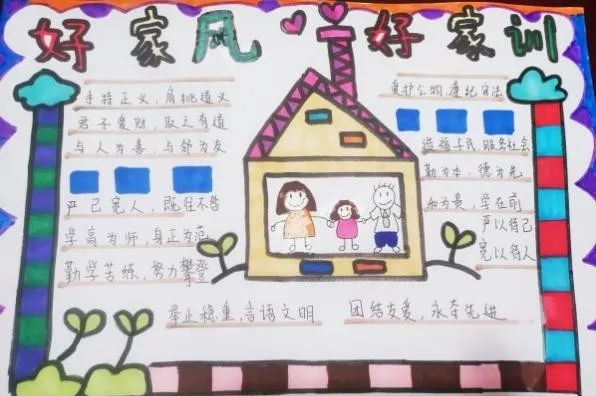 好家风 好家训
手持正义，肩挑道义
君子爱财，取之有道
与人为善，与邻为友
严己宽人，既往不咎
学高为师，身正为范
勤学苦练，努力攀登
爱护公物，遵纪守法
造福子民，服务社会
勤为本，德为先
和为贵，学在前
严以律己
宽以待人
举止稳重，言语文明
团结友爱，永夺先进